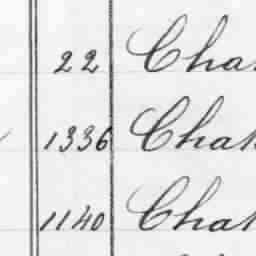 22 Cha
1336 Cha
1140 Cha